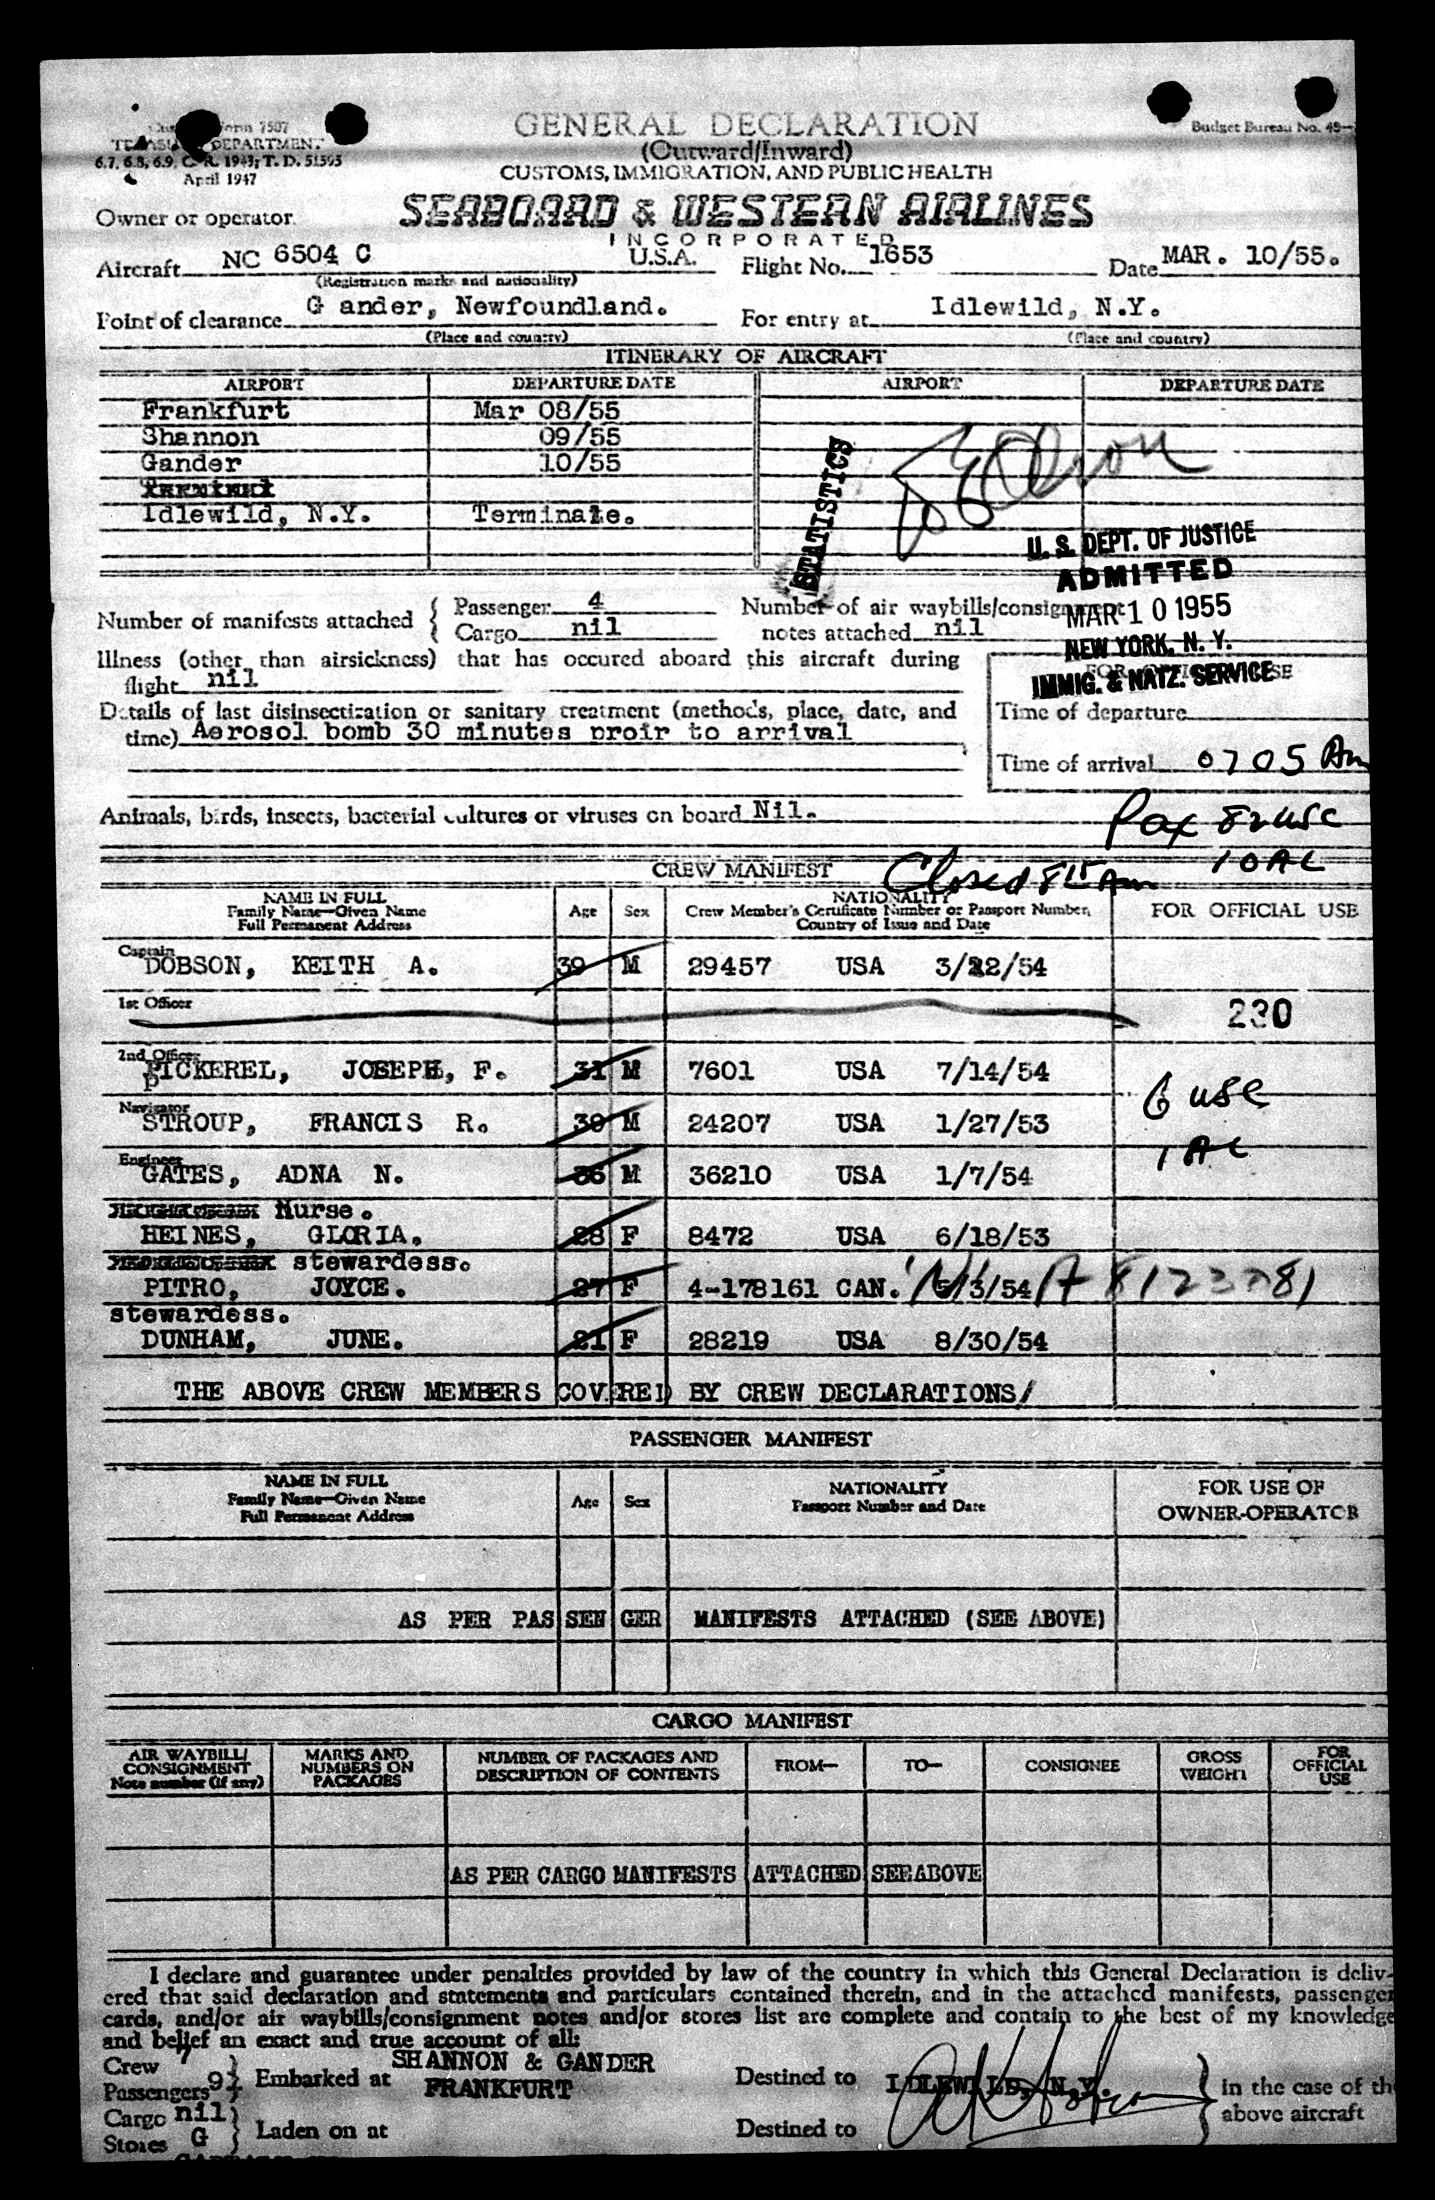 Form 7507
TREASURY DEPARTMENT
6.7, 6.8, 6.9, C. R. 1943; T. D. 51595
April 1947
Budget Bureau No. 48-
GENERAL DECLARATION
(Outward/Inward)
CUSTOMS, IMMIGRATION, AND PUBLIC HEALTH
Owner or operator SEABOARD & WESTERN AIRLINES
INCORPORATED
Aircraft NC 6504 C U.S.A. Flight No. 1653 Date MAR. 10/55.
(Registration marks and nationality)
Point of clearance G ander, Newfoundland. For entry at Idlewild, N.Y.
(Place and country) (Place and country)
ITINERARY OF AIRCRAFT
AIRPORT DEPARTURE DATE AIRPORT DEPARTURE DATE
Frankfurt Mar 08/55
Shannon 09/55
Gander 10/55
Idlewild, N.Y. Terminate.
STATISTICS
U. S. DEPT. OF JUSTICE
ADMITTED
MAR 10 1955
NEW YORK, N. Y.
IMMIG. & NATZ. SERVICE
Number of manifests attached { Passenger 4 Number of air waybills/consignment
Cargo nil notes attached nil
Illness (other than airsickness) that has occured aboard this aircraft during
flight nil
FOR OFFICIAL USE
Details of last disinsectization or sanitary treatment (methods, place, date, and
time) Aerosol bomb 30 minutes proir to arrival
Time of departure
Time of arrival 0705 Am
Animals, birds, insects, bacterial cultures or viruses on board Nil.
Pax 82 usc
10 AL
CREW MANIFEST
Closed 8 15 Am
NAME IN FULL
Family Name—Given Name
Full Permanent Address
Age Sex
NATIONALITY
Crew Member's Certificate Number or Passport Number,
Country of Issue and Date
FOR OFFICIAL USE
Captain
DOBSON, KEITH A. 39 M 29457 USA 3/22/54
1st Officer
230
2nd Officer
PICKEREL, JOSEPH, F. 31 M 7601 USA 7/14/54
6 usc
Navigator
STROUP, FRANCIS R. 30 M 24207 USA 1/27/53
1 AL
Engineer
GATES, ADNA N. 36 M 36210 USA 1/7/54
Nurse.
HEINES, GLORIA. 28 F 8472 USA 6/18/53
stewardess.
PITRO, JOYCE. 27 F 4-178161 CAN. 5/3/54
stewardess.
DUNHAM, JUNE. 21 F 28219 USA 8/30/54
THE ABOVE CREW MEMBERS COVERED BY CREW DECLARATIONS/
PASSENGER MANIFEST
NAME IN FULL
Family Name—Given Name
Full Permanent Address
Age Sex
NATIONALITY
Passport Number and Date
FOR USE OF
OWNER-OPERATOR
AS PER PAS SEN GER MANIFESTS ATTACHED (SEE ABOVE)
CARGO MANIFEST
AIR WAYBILL/
CONSIGNMENT
Note number (if any)
MARKS AND
NUMBERS ON
PACKAGES
NUMBER OF PACKAGES AND
DESCRIPTION OF CONTENTS
FROM— TO— CONSIGNEE
GROSS
WEIGHT
FOR
OFFICIAL
USE
AS PER CARGO MANIFESTS ATTACHED SEE ABOVE
I declare and guarantee under penalties provided by law of the country in which this General Declaration is deliv-
ered that said declaration and statements and particulars contained therein, and in the attached manifests, passenger
cards, and/or air waybills/consignment notes and/or stores list are complete and contain to the best of my knowledge
and belief an exact and true account of all:
Crew 7 } Embarked at SHANNON & GANDER Destined to IDLEWILD, N.Y. } in the case of th
Passengers FRANKFURT above aircraft
Cargo nil } Laden on at Destined to
Stores G